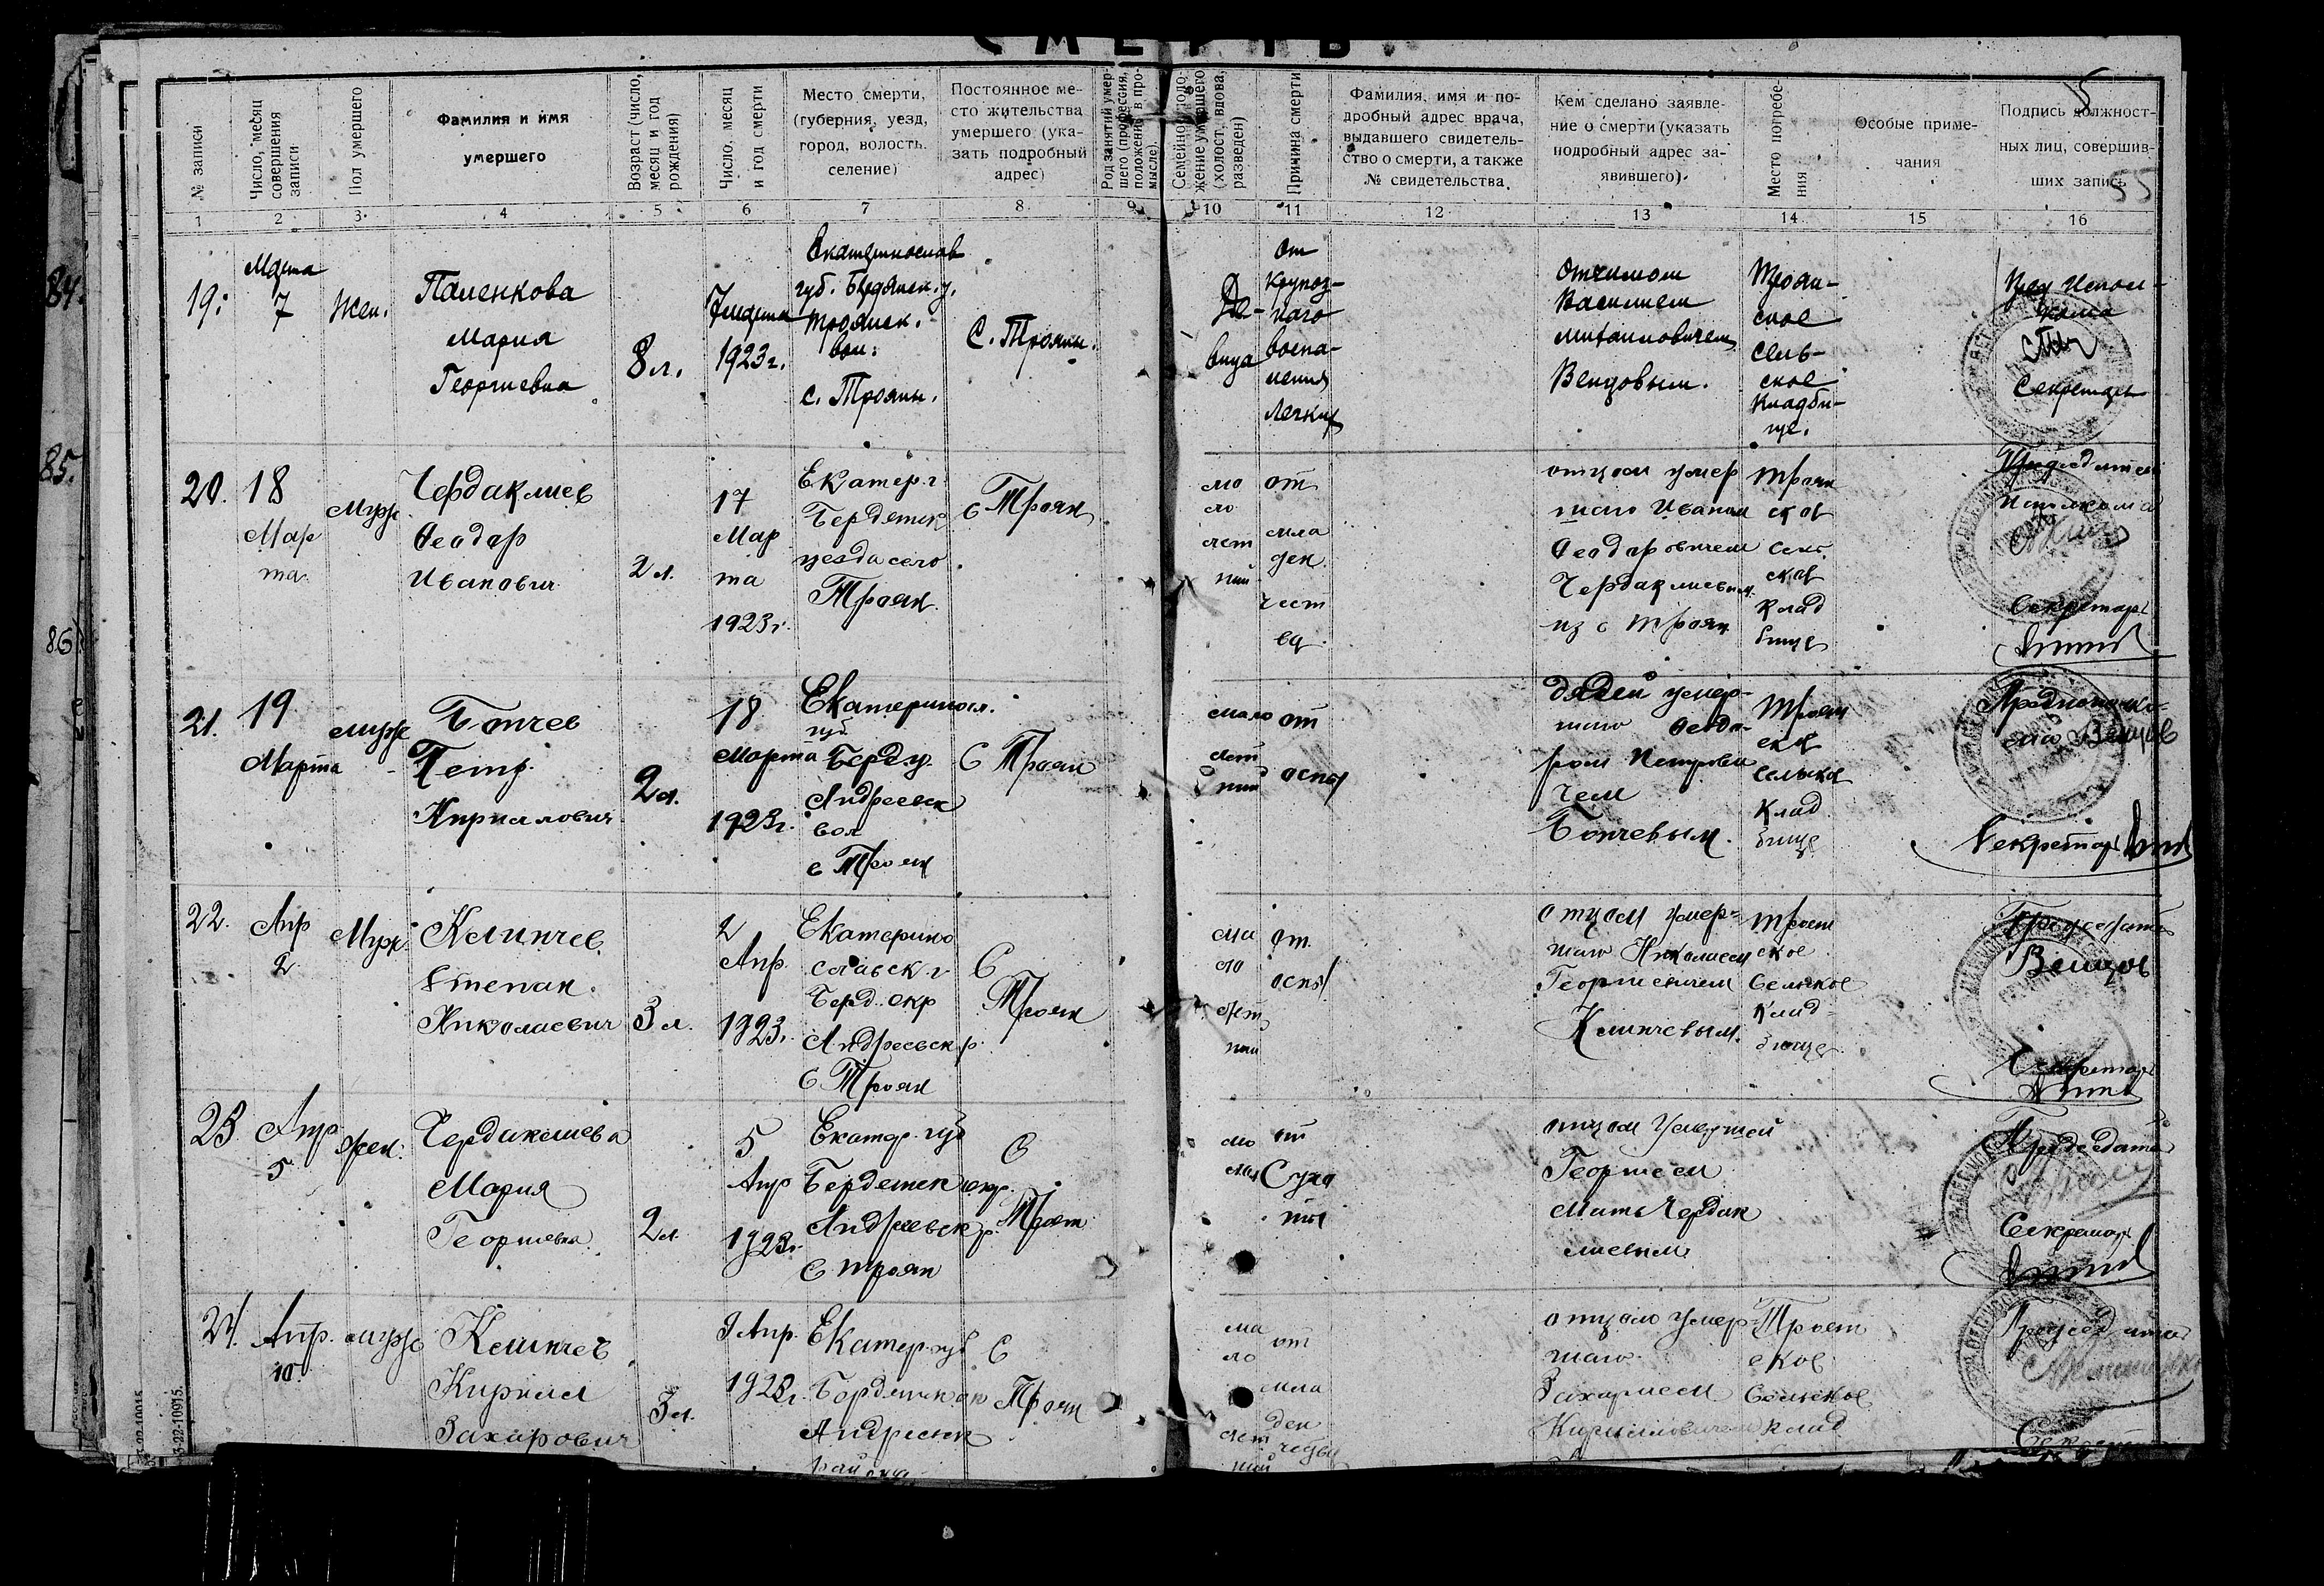 СМЕРТЬ.
№ записи
Число, месяц
совершения
записи
Пол умершего
Фамилия и имя
умершего
Возраст (число,
месяц и год
рождения)
Число, месяц
и год смерти
Место смерти,
(губерния, уезд,
город, волость,
селение)
Постоянное ме-
сто жительства
умершего (ука-
зать подробный
адрес)
Род занятий умер-
шего (профессия,
положение в про-
мысле).
Семейное поло-
жение умершего
(холост, вдова,
разведен)
Причина смерти
Фамилия, имя и по-
дробный адрес врача,
выдавшего свидетель-
ство о смерти, а также
№ свидетельства.
Кем сделано заявле-
ние о смерти (указать
подробный адрес за-
явившего).
Место погребе-
ния
Особые приме-
чания
Подпись должност-
ных лиц, совершив-
ших запись
5
55
1 2 3 4 5 6 7 8 9 10 11 12 13 14 15 16
84.
85.
86
19.
Марта
7
Жен.
Паленкова
Мария
Георгиевна
8 л.
7 марта
1923 г.
Екатеринослав
губ. Бердянск. у.
Троянск.
вол.
с. Трояны.
С. Трояны.
Де-
вица
от
крупоз-
наго
воспа-
ления
легких
Отчимом
Василием
Михайловичем
Венцовым.
Троян-
ское
сель-
ское
кладби-
ще.
Пред Испол-
кома
Секретарь
20.
18
Мар
та
Муж
Чердаклиев
Феодор
Иванович
2 л.
17
Мар
та
1923 г.
Екатер. г
Бердянск
уезда село
Троян
С Троян
мо
ло
лет
ний
от
мла
ден.
чест
ва
отцом умер
шаго Иваном
Феодоровичем
Чердаклиевым
из с Троян
Троян
ское
сель
ское
клад
бище
Председатель
Исполкома
Секретарь
21.
19
Марта
муж
Бончев
Петр
Кириллович
2 л.
18
Марта
1923 г.
Екатеринсл.
губ
Берд. у.
Андреевск
вол
с Троян
С Троян
мало
лет
ний
от
оспы
дядей умер-
шаго Феодо-
ром Петрови
чем
Бончевым.
Троян
ское
сельское
клад
бище
Венцов
Секретарь
22.
Апр
2
Муж
Клинчев
Степан
Николаевич
3 л.
2
Апр.
1923 г.
Екатерино
славск. г
Берд. окр
Андреевск р.
С Троян
С
Троян
ма
ло
лет
ний
от
оспы
отцом умер-
шаго Николаем
Георгиевичем
Клинчевым.
Троян
ское
Сельское
клад-
бище
Председатель
Венцов
Секретарь
23
Апр
5
жен.
Чердаклиева
Мария
Георгиевна
2 л.
5
Апр
1923 г.
Екатер. губ
Бердянск окр.
Андреевск р.
С Троян
С
Троян
от
отцом умершей
Георгием
Чердак
лиевым
Председатель
Секретарь
24.
Апр.
10.
муж
Клинчев
Кирилл
Захарович
3 л.
9 Апр.
1923 г.
Екатер. губ
Бердянск ок
Андреевск
района
С
Троян
ма
ло
лет
ний
от
мла
ден
чества
отцом умер-
шаго
Захарием
Кирилловичем
Троян
ское
Сельское
клад
Председатель
Секретарь
3-22-10915.